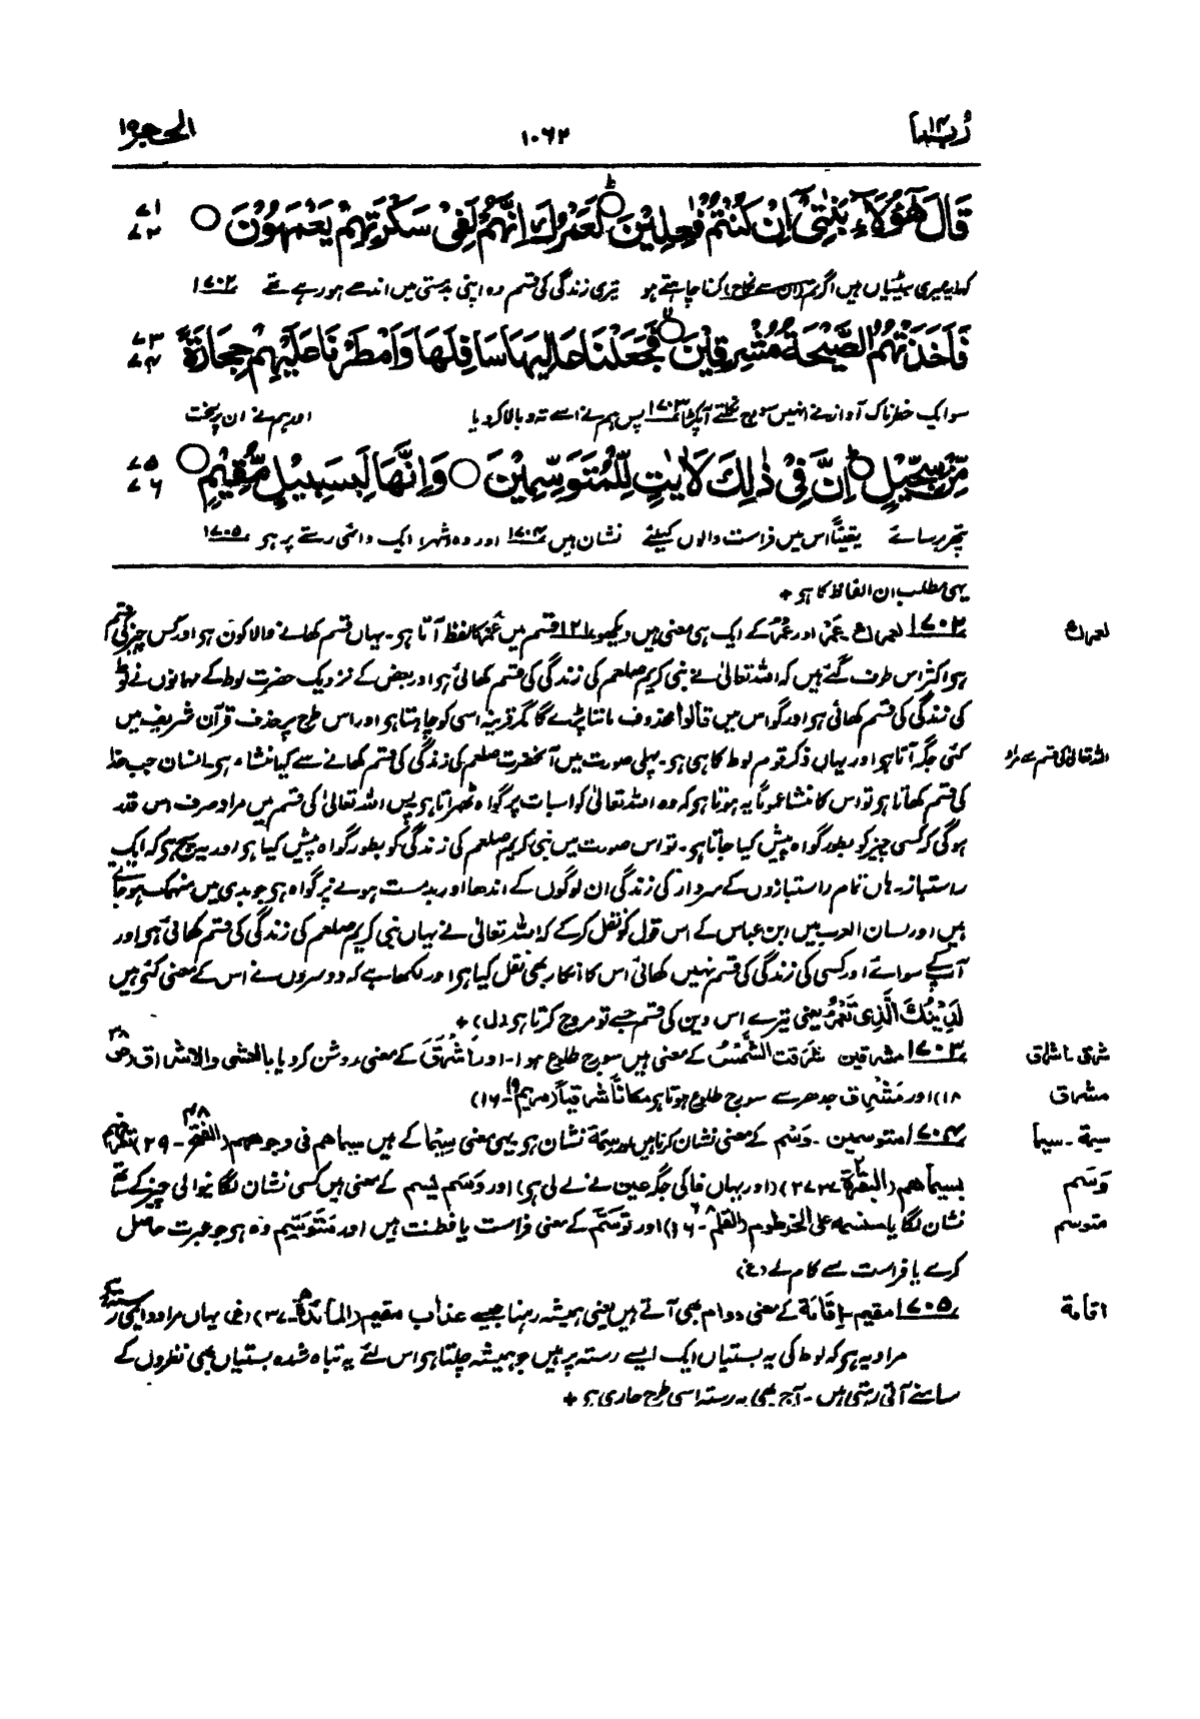 ربما ١٤
١٠٦٢
الحجر ١٥
قَالَ هٰٓؤُلَآءِ بَنٰتِیْٓ اِنْ كُنْتُمْ فٰعِلِیْنَ ؕ لَعَمْرُكَ اِنَّهُمْ لَفِیْ سَكْرَتِهِمْ یَعْمَهُوْنَ ○ ٧١ ٧٢
کہا یہ میری بیٹیاں ہیں اگر تم (ان سے نکاح) کرنا چاہتے ہو تیری زندگی کی قسم وہ اپنی بدمستی میں اندھے ہو رہے تھے ١٧٠٢
فَاَخَذَتْهُمُ الصَّیْحَةُ مُشْرِقِیْنَ ۙ فَجَعَلْنَا عَالِیَهَا سَافِلَهَا وَاَمْطَرْنَا عَلَیْهِمْ حِجَارَةً ٧٣ ٧٤
سو ایک خطرناک آواز نے انہیں سورج نکلتے آ پکڑا ١٧٠٣ پس ہم نے اسے تہ و بالا کر دیا اور ہم نے ان پر سخت
مِّنْ سِجِّیْلٍ ؕ اِنَّ فِیْ ذٰلِكَ لَاٰیٰتٍ لِّلْمُتَوَسِّمِیْنَ ○ وَاِنَّهَا لَبِسَبِیْلٍ مُّقِیْمٍ ○ ٧٥ ٧٦
پتھر برسائے یقیناً اس میں فراست والوں کیلئے نشان ہیں ١٧٠٤ اور وہ (شہر) ایک دائمی رستے پر ہو ١٧٠٥
یہی مطلب ان الفاظ کا ہو +
لعمرك
١٧٠٢ لعمرك۔ عَمْر اور عُمْر کے ایک ہی معنی ہیں دیکھو ١٢١ قسم میں عَمْر کا لفظ آتا ہو۔ یہاں قسم کھانے والا کون ہو اور کس چیز کی قسم
ہو اکثر اس طرف گئے ہیں کہ اللہ تعالیٰ نے نبی کریم صلعم کی زندگی کی قسم کھائی ہو اور بعض کے نزدیک حضرت لوط کے مہمانوں نے لوط
کی زندگی کی قسم کھائی ہو اور گو اس میں قالوا محذوف ماننا پڑے گا مگر قرینہ اسی کو چاہتا ہو اور اس طرح پر حذف قرآن شریف میں
اللہ تعالیٰ کی قسم سے مراد
کئی جگہ آتا ہو اور یہاں ذکر قوم لوط کا ہی ہو۔ پہلی صورت میں آنحضرت صلعم کی زندگی کی قسم کھانے سے کیا منشاء ہو۔ انسان جب خدا
کی قسم کھاتا ہو تو اس کا منشا عموماً یہ ہوتا ہو کہ وہ اللہ تعالیٰ کو اس بات پر گواہ ٹھہراتا ہو پس اللہ تعالیٰ کی قسم میں مراد صرف اس قدر
ہوگی کہ کسی چیز کو بطور گواہ پیش کیا جاتا ہو۔ تو اس صورت میں نبی کریم صلعم کی زندگی کو بطور گواہ پیش کیا ہو اور یہ سچ ہو کہ ایک
راستباز۔ ہاں تمام راستبازوں کے سردار کی زندگی ان لوگوں کے اندھا اور بدمست ہونے پر گواہ ہو جو بدی میں منہمک ہو جاتے
ہیں اور لسان العرب میں ابن عباس کے اس قول کو نقل کر کے کہ اللہ تعالیٰ نے یہاں نبی کریم صلعم کی زندگی کی قسم کھائی ہو اور
آپ کے سوائے اور کسی کی زندگی کی قسم نہیں کھائی اس کا انکار بھی نقل کیا ہو اور لکھا ہے کہ دوسروں نے اس کے معنی کئے ہیں
لَدِیْنُكَ الَّذِی تَعْمُرُ یعنی تیرے اس دین کی قسم جسے تو مروج کرتا ہو (ل) +
شرق۔ اشراق
١٧٠٣ مشرقین شَرَقَتِ الشَّمْسُ کے معنی ہیں سورج طلوع ہوا۔ اور اَشْرَقَ کے معنی روشن کر دیا بالعشی والاشراق (صٓ ٣٨
مشرق
١٨) اور مَشْرِق جدھر سے سورج طلوع ہوتا ہو مكانًا شرقیًا (مریم ١٩۔ ١٦)
سمة۔ سیما
١٧٠٤ متوسمین۔ وَسْم کے معنی نشان کرنا ہیں اور سِمَة نشان ہو یہی معنی سِیْمَا کے ہیں سیماهم فی وجوههم (الفتح ٤٨۔ ٢٩) تعرفهم
وَسَم
بسیماهم (البقرۃ ٢۔ ٢٧٣) (اور یہاں فا کی جگہ عین نے لے لی ہو) اور وَسَم یَسِم کے معنی ہیں کسی نشان لگانیوالی چیز کے ساتھ
متوسم
نشان لگایا سنسمه علی الخرطوم (القلم ٦٨۔ ١٦) اور تَوَسُّم کے معنی فراست یا فطنت ہیں اور مُتَوَسِّم وہ ہو جو عبرت حاصل
کرے یا فراست سے کام لے (غ)
اقامة
١٧٠٥ مقیم۔ اِقَامَة کے معنی دوام بھی آتے ہیں یعنی ہمیشہ رہنا جیسے عذاب مقیم (المائدۃ ٥۔ ٣٧) (غ) یہاں مراد دائمی رستہ سے
مراد یہ ہو کہ لوط کی یہ بستیاں ایک ایسے رستہ پر ہیں جو ہمیشہ چلتا ہو اس لئے یہ تباہ شدہ بستیاں بھی نظروں کے
سامنے آتی رہتی ہیں۔ آج بھی یہ رستہ اسی طرح جاری ہو +